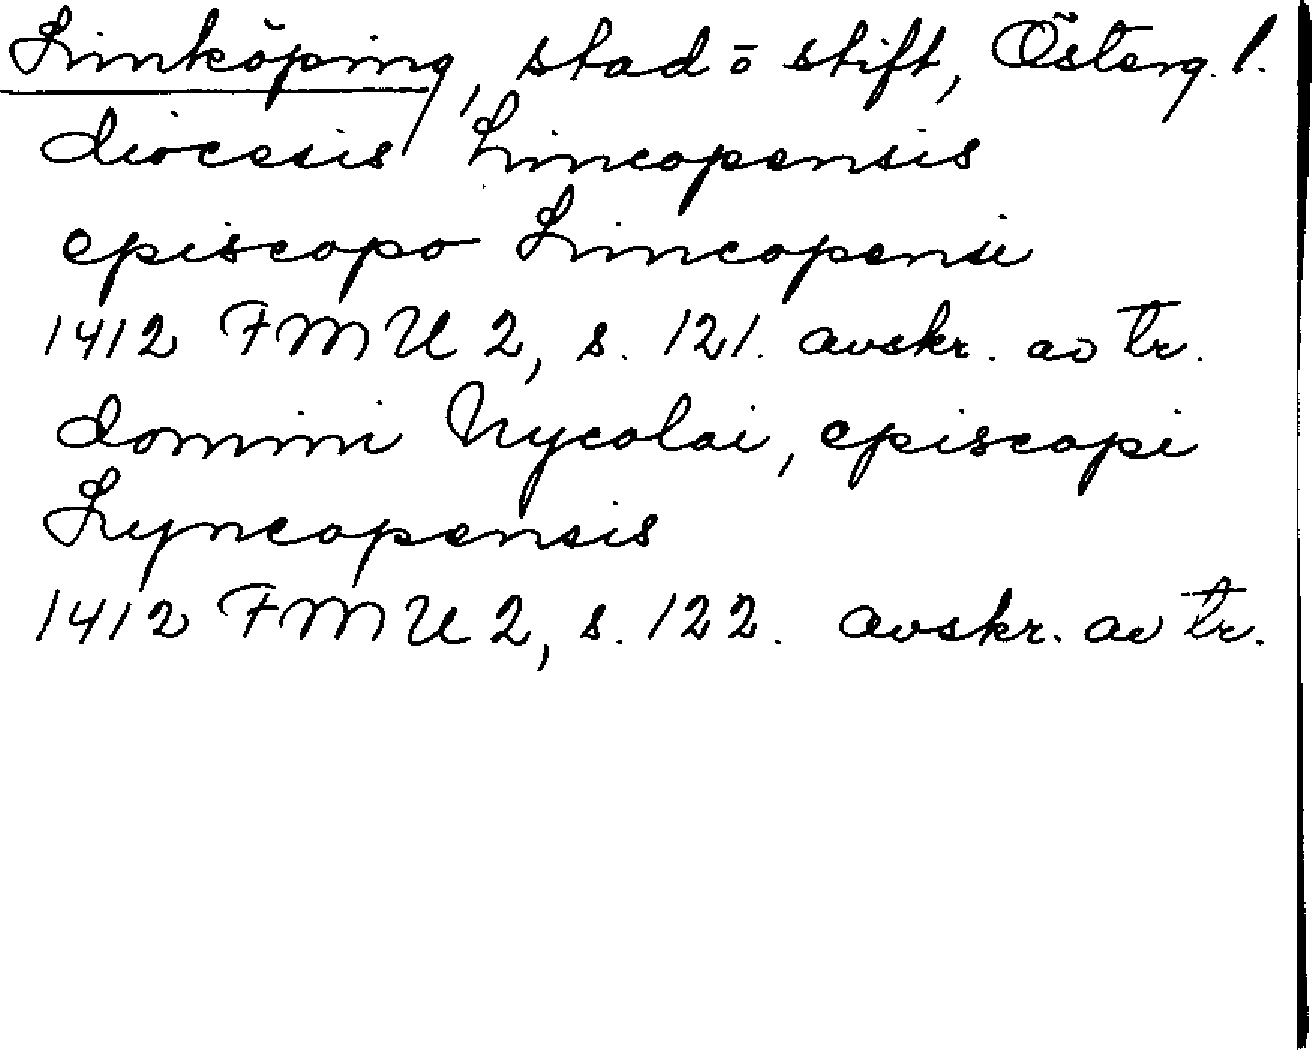 Linköping, stad o stift, Österg. l.
diocesis Lincopensis
episcopo Lincopensi
1412 FMU 2, s. 121. avskr. av tr.
domini Nycolai, episcopi
Lyncopensis
1412 FMU 2, s. 122. avskr. av tr.